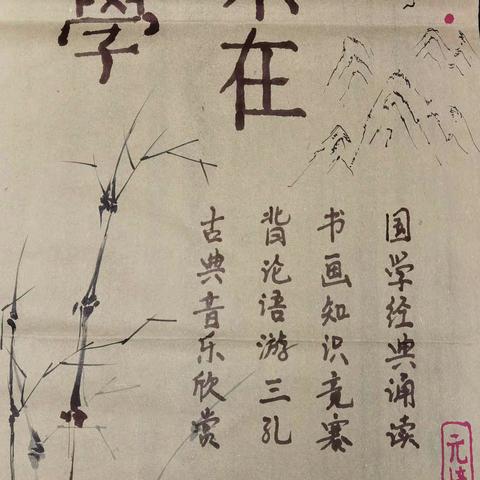 在
學
国学经典诵读
书画知识竞赛
背论语游三孔
古典音乐欣赏
元培